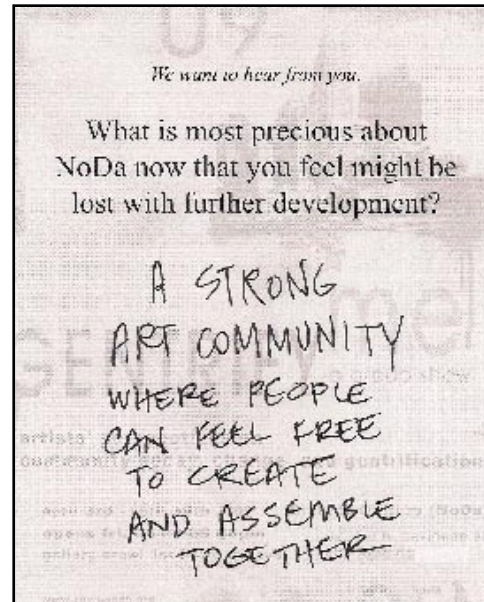 We want to hear from you.
What is most precious about
NoDa now that you feel might be
lost with further development?
A STRONG
ART COMMUNITY
WHERE PEOPLE
CAN FEEL FREE
TO CREATE
AND ASSEMBLE
TOGETHER